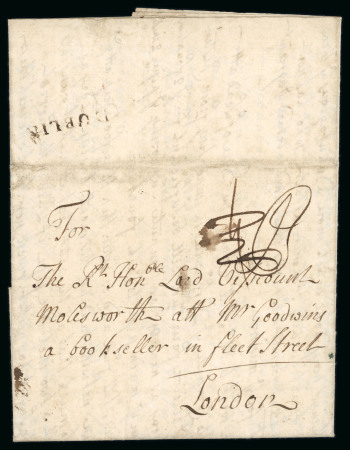 DUBLIN
For
The Rt. Honble Lord Viscount
Molesworth att Mr Goodwins
a bookseller in fleet Street
London